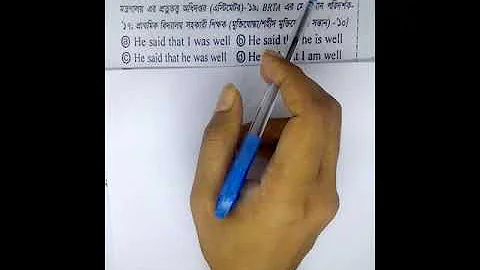 মন্ত্রণালয় এর প্রত্নতত্ত্ব অধিদপ্তর (এস্টিমেটর)-'১৯; BRTA এর মে পরিদর্শক-
'১৭; প্রাথমিক বিদ্যালয় সহকারী শিক্ষক (মুক্তিযোদ্ধা/শহীদ সন্তান) -'১০/
ⓐ He said that I was well ⓑ He said he is well
ⓒ He said that he was well ⓓ I am well